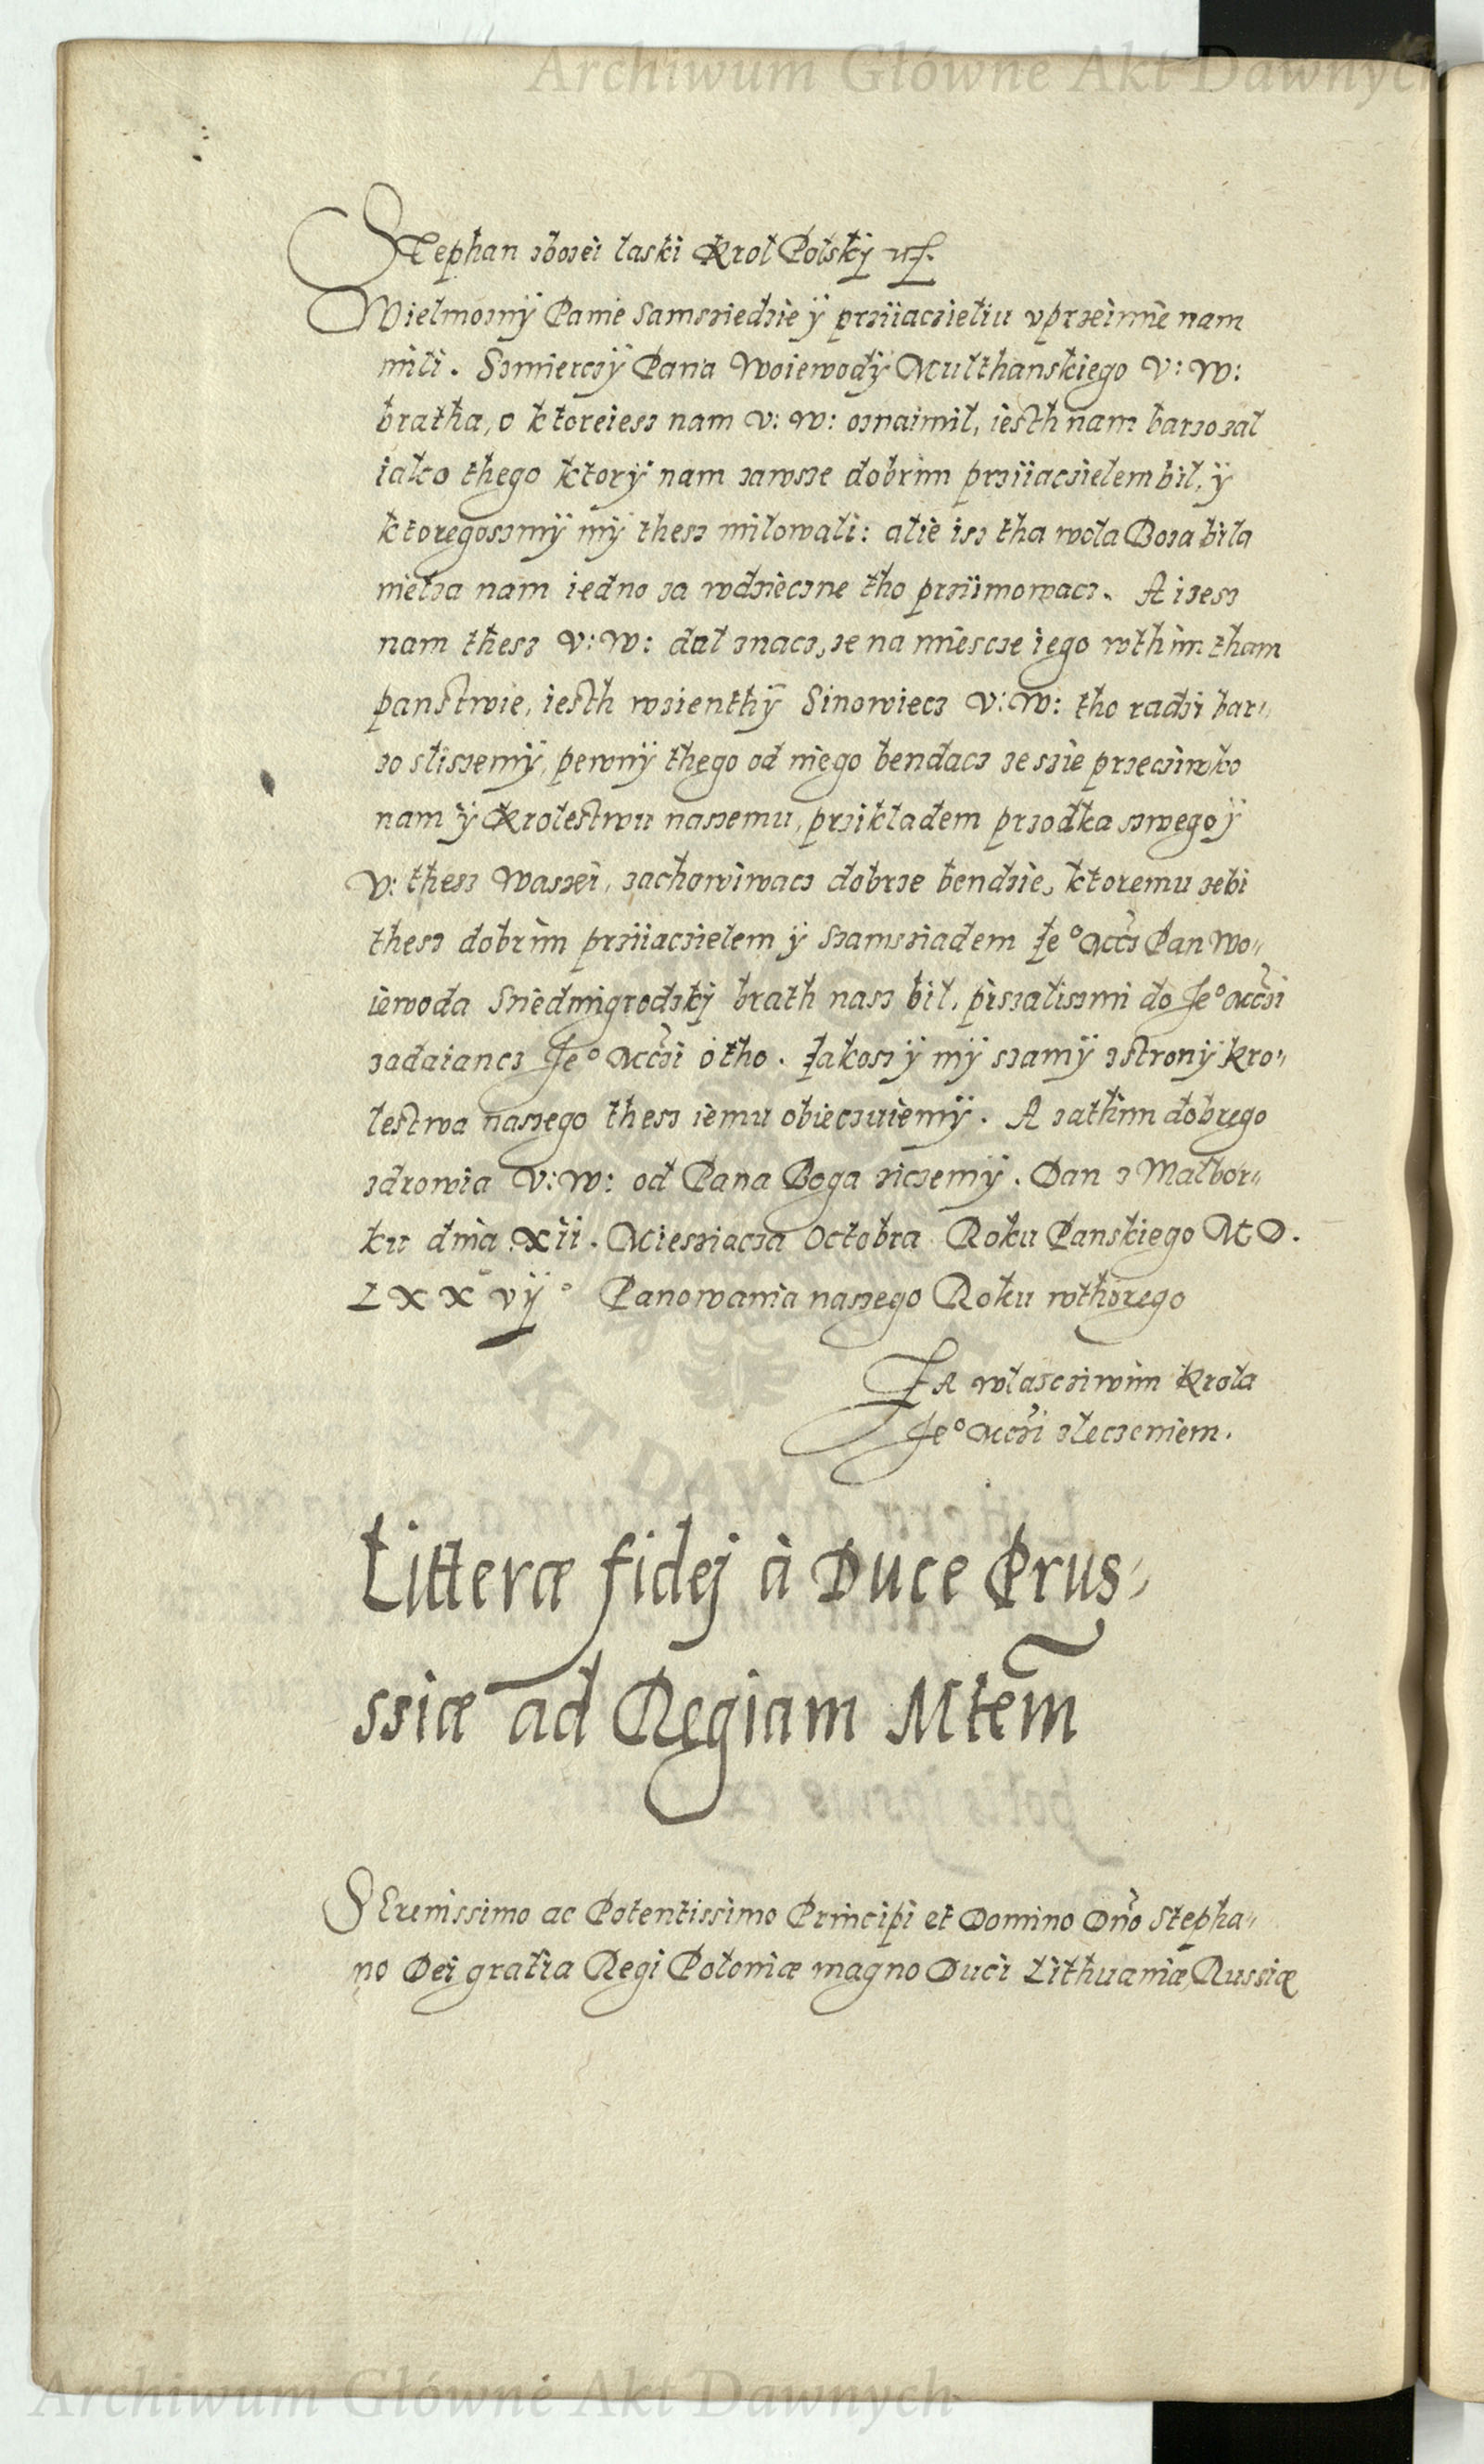 Archiwum Główne Akt Dawnych
Stephan zbozei laski Krol Polskÿ
Wielmoznÿ Panie Samsziedzie ÿ prziiaczieliu vprzeimie nam
mili. Szmierczÿ Pana Woiewodÿ Multhanskiego V: W:
bratha, o ktoreiesz nam V: W: oznaimil, iesth nam barzo zal
iako thego ktorÿ nam zawsze dobrim prziiaczielem bil, ÿ
ktoregoszmÿ mÿ thesz milowali: alie isz tha wola Boza bila
nielza nam iedno za wdzieczne tho prziimowacz. A izesz
nam thesz V: W: dal znacz, ze na miescze iego wthim tham
panstwie, iesth wzienthÿ Sinowiecz V: W: tho radzi bar„
zo sliszemÿ, pewnÿ thego od niego bendacz ze szie przecziwko
nam ÿ Krolestwu naszemu, przikladem przodka szwego ÿ
V: thesz Waszei, zachowiwacz dobrze bendzie, ktoremu zebi
thesz dobrim prziiaczielem ÿ szamsziadem Je° Mcz Pan Wo„
iewoda Sziedmigrodzkÿ brath nasz bil, piszaliszmi do Je° Mczi
zadaiancz Je° Mczi o tho. Jakosz ÿ mÿ szamÿ z stronÿ kro„
lestwa naszego thesz iemu obieczuiemÿ. A zathim dobrego
zdrowia V: W: od Pana Boga ziczemÿ. Dan z Malbor„
ku dnia XII. Miesziacza Octobra Roku Panskiego M D.
L X X vÿ° Panowania naszego Roku wthorego
Za wlascziwim Krola
Je° Mczi zleczeniem.
Litteræ fidej à Duce Prus„
ssiæ ad Regiam Mtem̃
SErenissimo ac Potentissimo Principi et Domino Dño Stepha„
no Dei gratia Regi Poloniæ magno Duci Lithuaniæ, Russiæ
Archiwum Główne Akt Dawnych